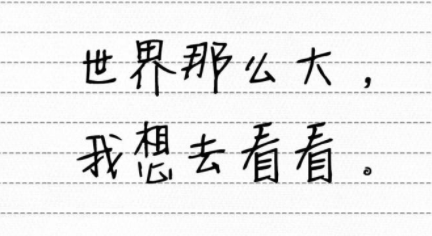 世界那么大，
我想去看看。